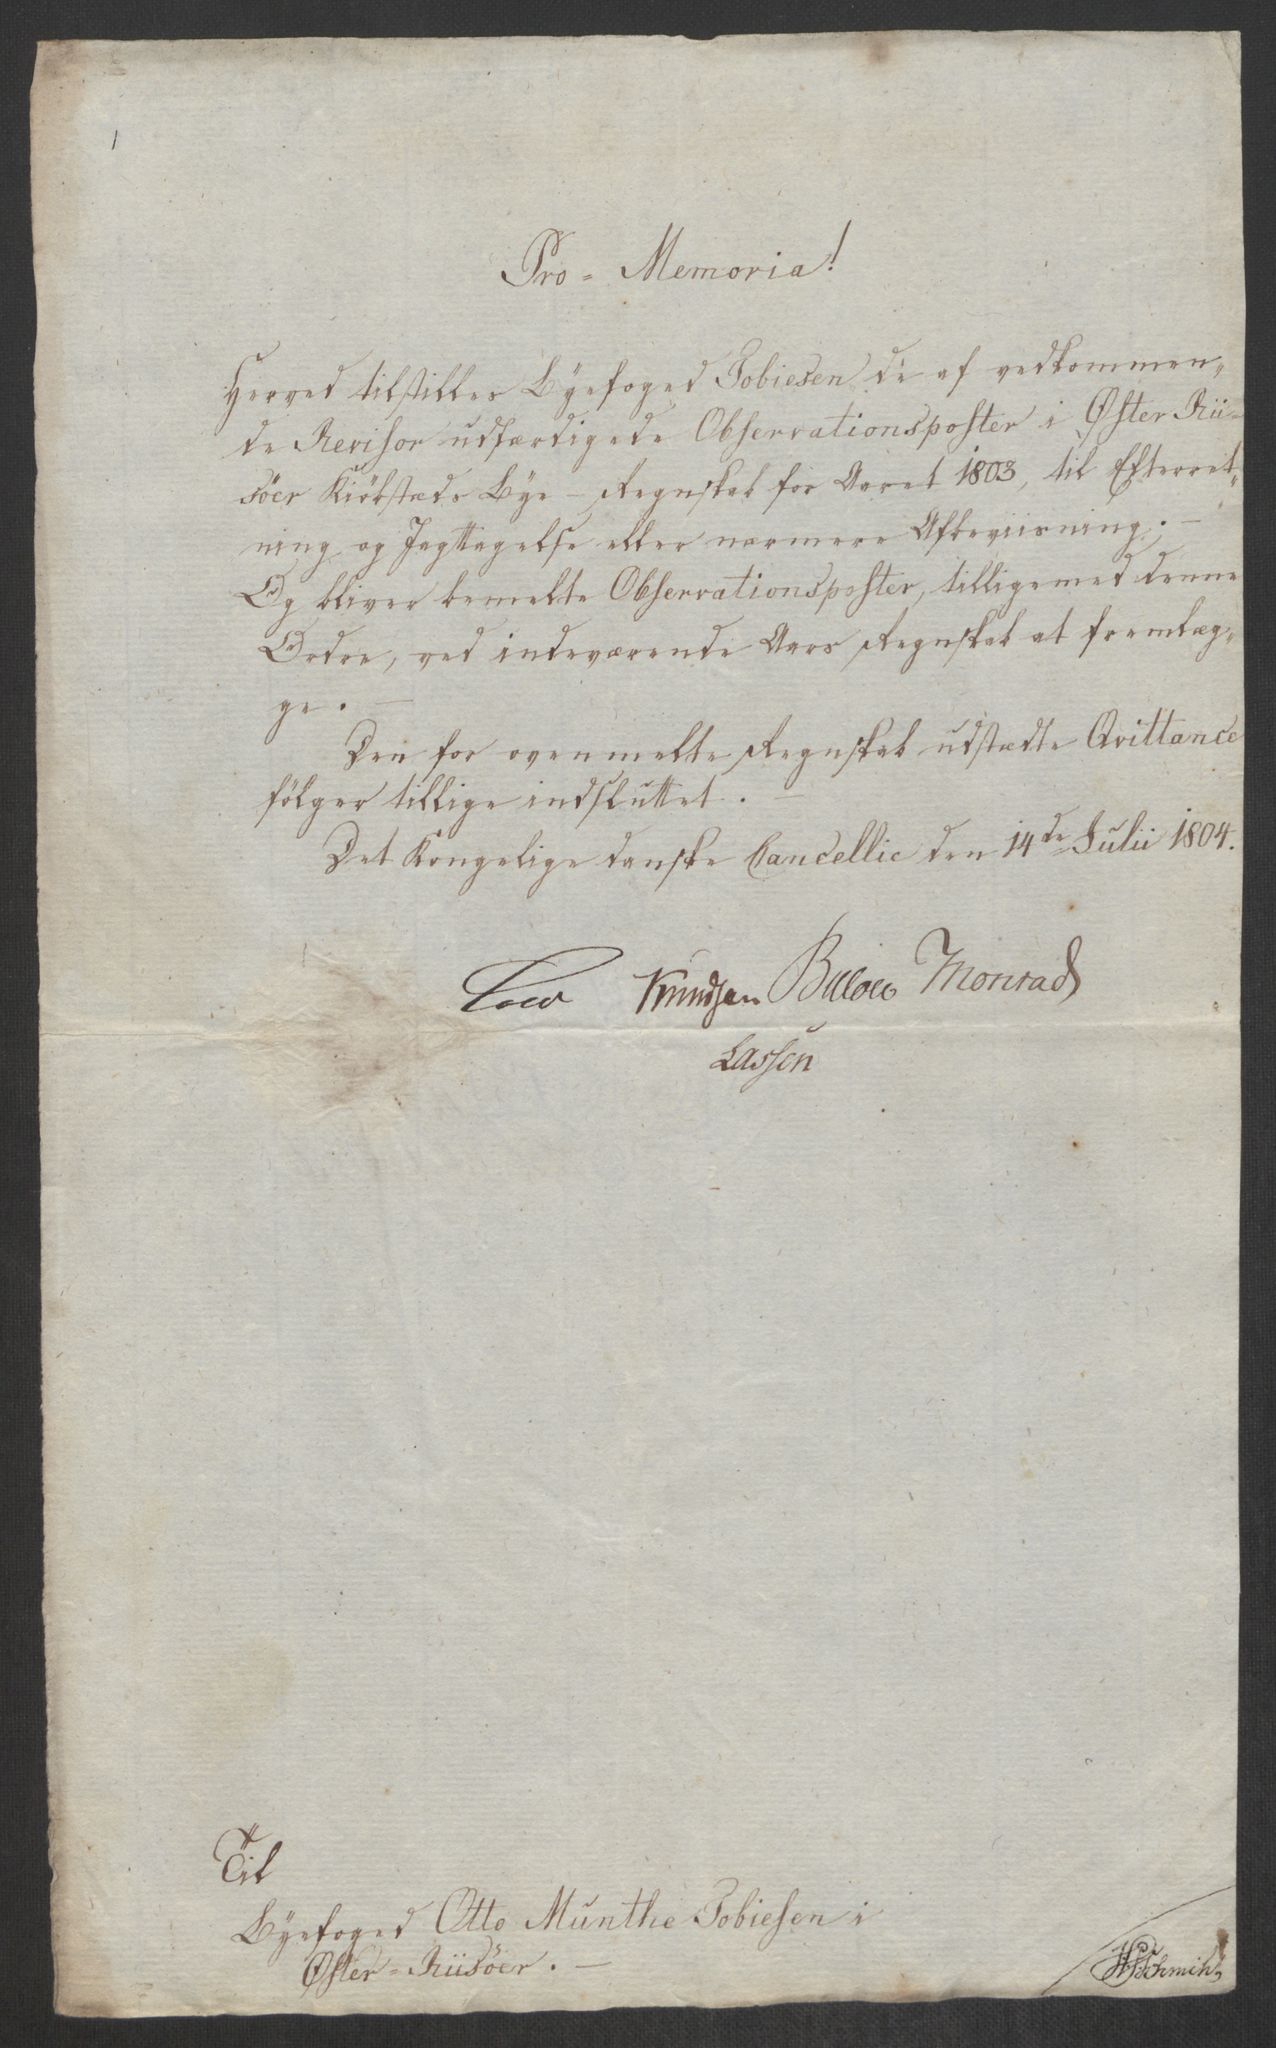 1
Pro = Memoria!
Herved tilstilles Byefoged Tobiesen de af vedkommen„
de Revisor udfærdigede Observationsposter i Øster Rii-
söer Kiöbstæds Bye - Regnskab for Aaret 1803, til Efterret„
ning og Jagttagelse eller nærmere Afbeviisning. -
Og bliver bemelte Observationsposter, tilligemed denne
Ordre, ved indeværende Aars Regnskab at fremlæg„
ge. -
Den for ovenmelte Regnskab udstædte Qvittance
fölger tillige indsluttet. -
Det Kongelige danske Cancellie den 14de Julii 1804.
Knudsen Bülow Monrad
Lassen
Til
Byefoged Otto Munthe Tobiesen i
Øster = Riisöer. -